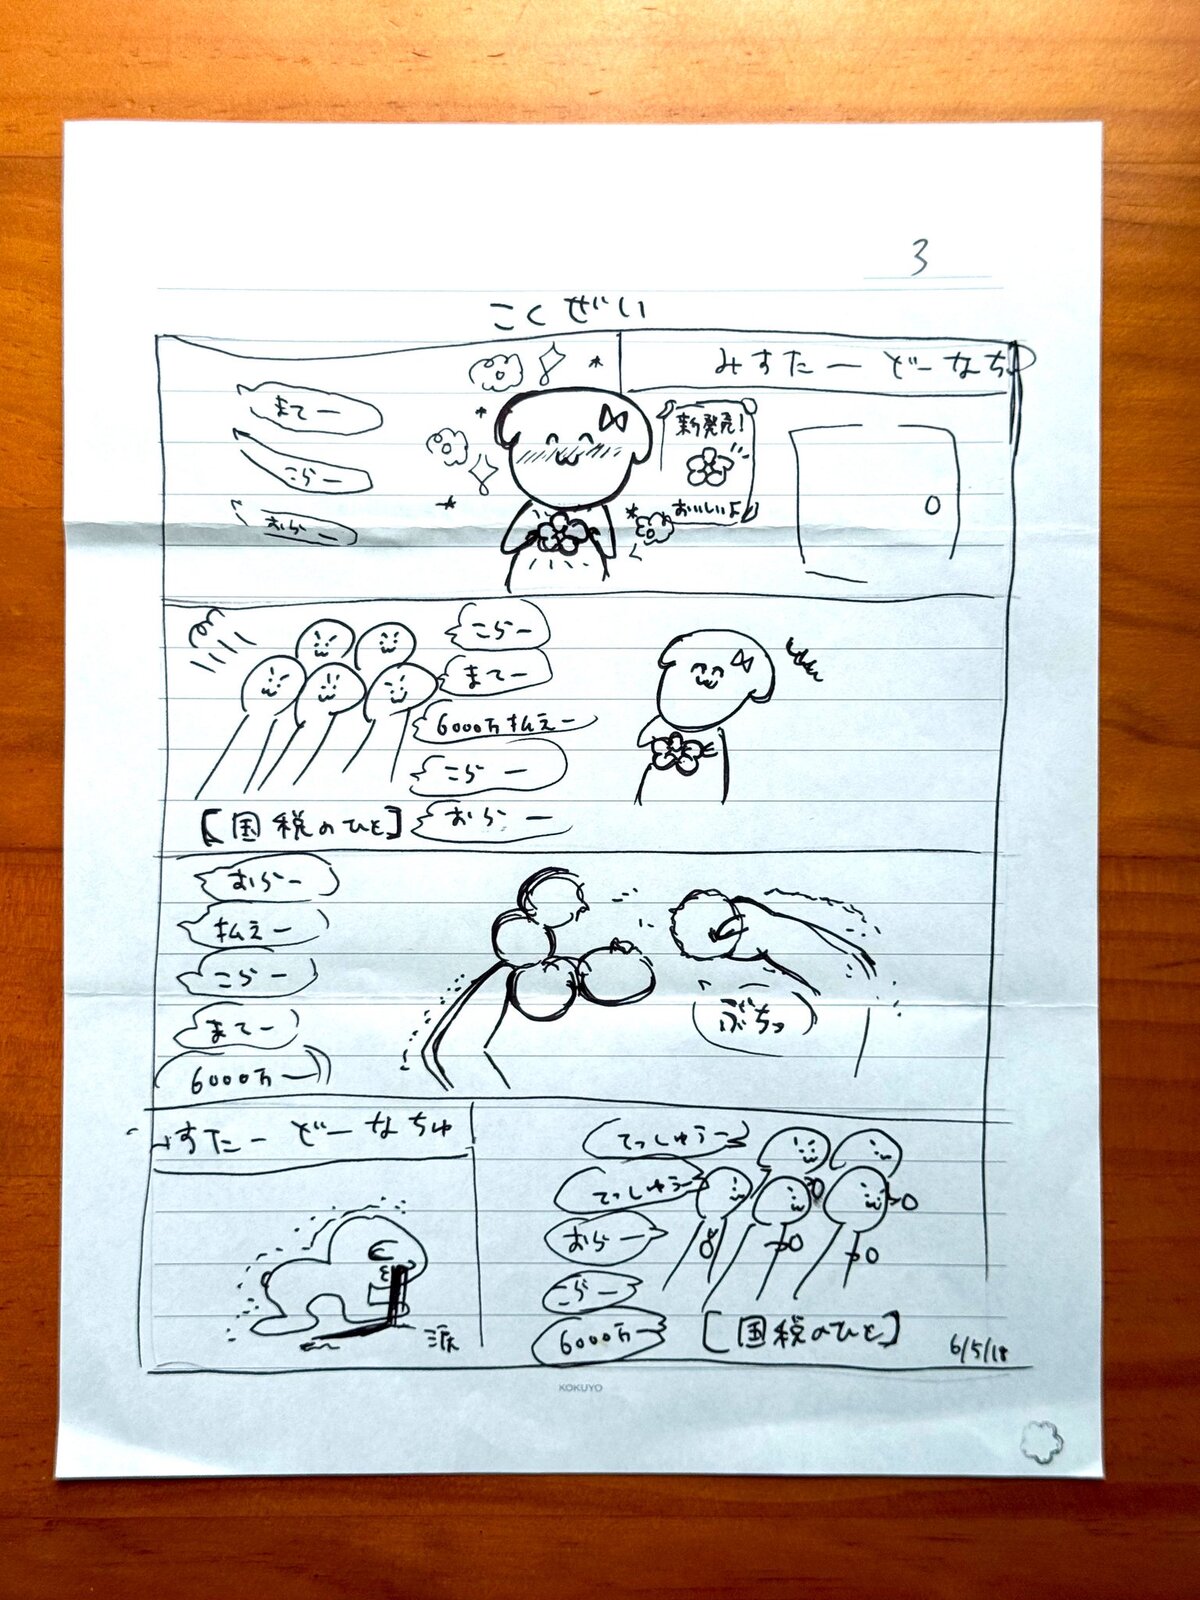 3
こくぜい
みすたーどーなちゅ
新発売!
おいしいよ
まてー
こらー
おらー
こらー
まてー
6000万払えー
こらー
おらー
【国税のひと】
おらー
払えー
こらー
まてー
6000万ー
ぶちっ
みすたーどーなちゅ
涙
てっしゅうー
てっしゅうー
おらー
こらー
6000万ー
【国税のひと】
6/5/18
KOKUYO